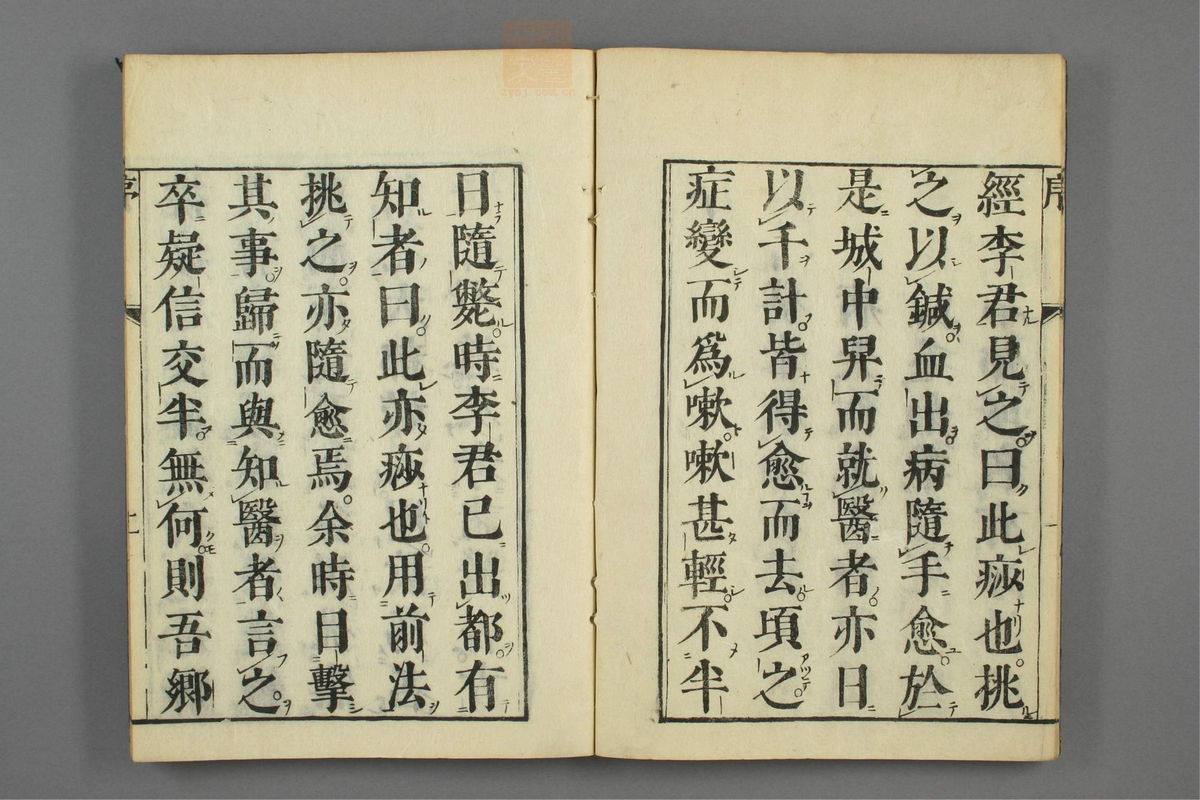 序
經李君見之曰此痧也挑
之以鍼血出病隨手愈於
是城中舁而就醫者亦日
以千計皆得愈而去頃之
症變而爲嗽嗽甚輕不半
日隨斃時李君已出都有
知者曰此亦痧也用前法
挑之亦隨愈焉余時目擊
其事歸而與知醫者言之
卒疑信交半無何則吾鄉
序